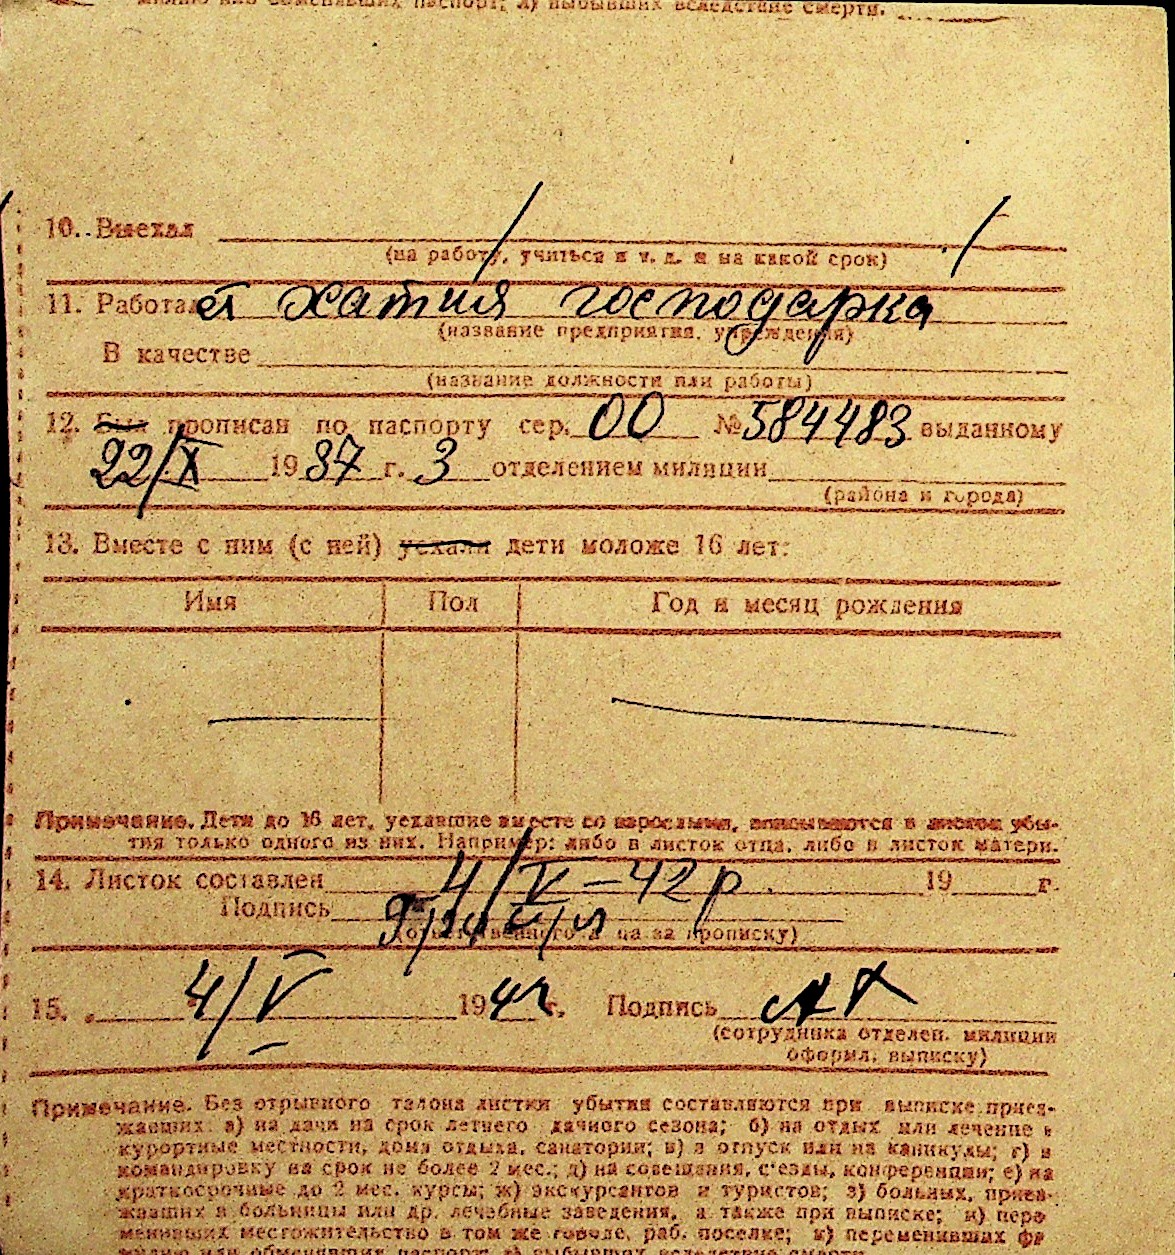 милию или обменявших паспорт; л) выбывших вследствие смерти.
10. Выехал
(на работу, учиться и т. д. и на какой срок)
11. Работает хатня господарка
(название предприятия, учреждения)
В качестве
(название должности или работы)
12. Был прописан по паспорту сер. 00 № 584483 выданному
22/X 1937 г. 3 отделением милиции
(района и города)
13. Вместе с ним (с ней) уехали дети моложе 16 лет:
Имя Пол Год и месяц рождения
Примечание. Дети до 16 лет, уехавшие вместе со взрослыми, вписываются в листок убы-
тия только одного из них. Например: либо в листок отца, либо в листок матери.
14. Листок составлен 4/V – 42 р. 19 г.
Подпись
(ответственного лица за прописку)
15. 4/V 1942 г. Подпись
(сотрудника отделен. милиции
оформл. выписку)
Примечание. Без отрывного талона листки убытия составляются при выписке приез-
жавших: а) на дачи на срок летнего дачного сезона; б) на отдых или лечение в
курортные местности, дома отдыха, санатории; в) в отпуск или на каникулы; г) в
командировку на срок не более 2 мес.; д) на совещания, съезды, конференции; е) на
краткосрочные до 2 мес. курсы; ж) экскурсантов и туристов; з) больных, приез-
жавших в больницы или др. лечебные заведения, а также при выписке; и) пере
менивших местожительство в том же городе, раб. поселке; к) переменивших фа
милию или обменявших паспорт; л) выбывших вследствие смерти.